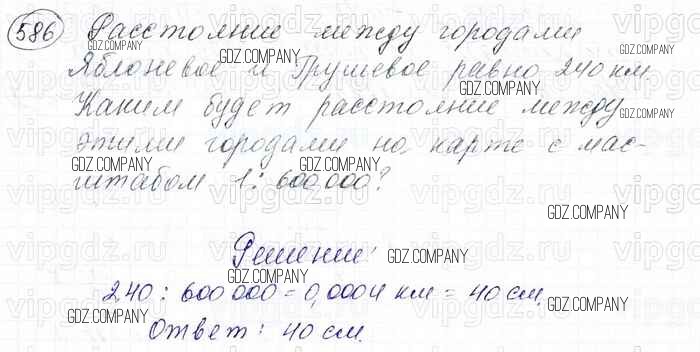 586 Расстояние между городами
Яблоневое и Грушевое равно 240 км.
Каким будет расстояние между
этими городами на карте с мас-
штабом 1 : 600 000?
Решение:
240 : 600 000 = 0,0004 км = 40 см.
Ответ: 40 см.
GDZ.COMPANY
GDZ.COMPANY
GDZ.COMPANY
GDZ.COMPANY
GDZ.COMPANY
GDZ.COMPANY
GDZ.COMPANY
GDZ.COMPANY
GDZ.COMPANY
GDZ.COMPANY
GDZ.COMPANY
GDZ.COMPANY
vipgdz.ru